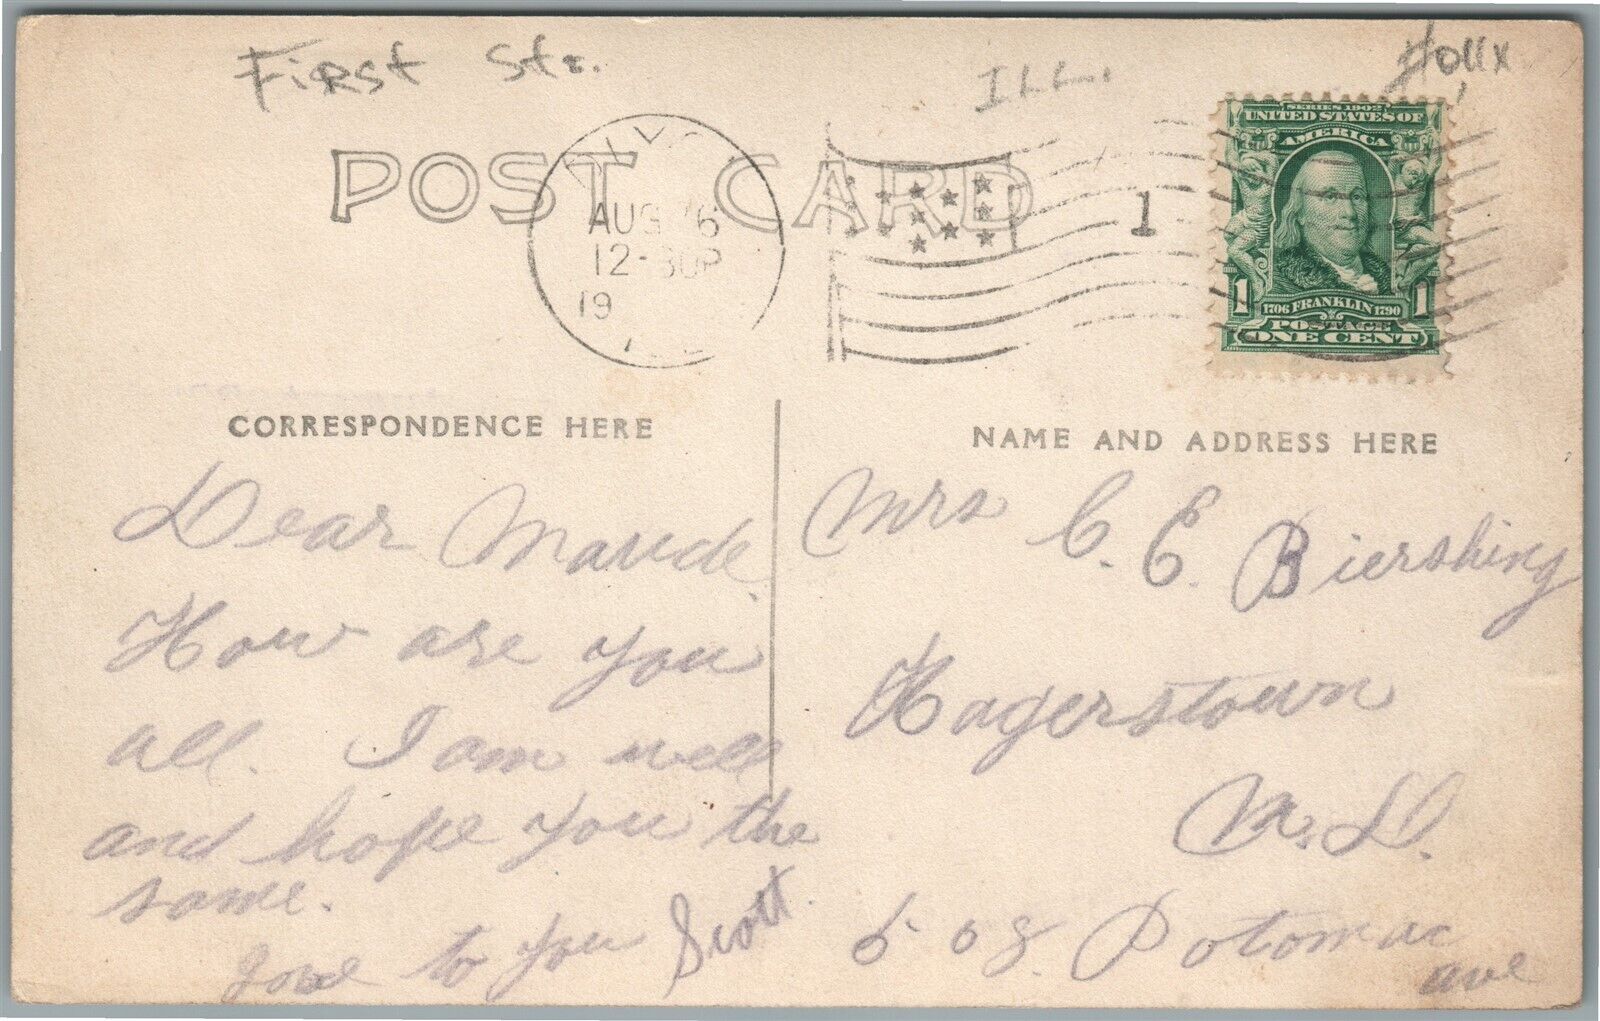 First St.
ILL.
POST CARD
AUG 6
12-30P
19
1
SERIES 1902
UNITED STATES OF
AMERICA
1 1
FRANKLIN
1706 1790
POSTAGE
ONE CENT
CORRESPONDENCE HERE
Dear Maude.
How are you
all. I am well
and hope you the
same.
Love to you Scott.
NAME AND ADDRESS HERE
Mrs C. E. Biershing
Hagerstown
M.D.
508. Potomac
ave